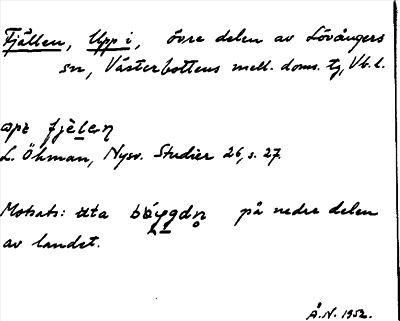 Fjällen, Uppi, övre delen av Lövångers
sn, Västerbottens mell. doms. tg, Vb. l.
opi fjèlen
L. Öhman, Nysv. Studier 26, s. 27.
Motsats: uta böygdn på nedre delen
av landet.
Å.N. 1952.